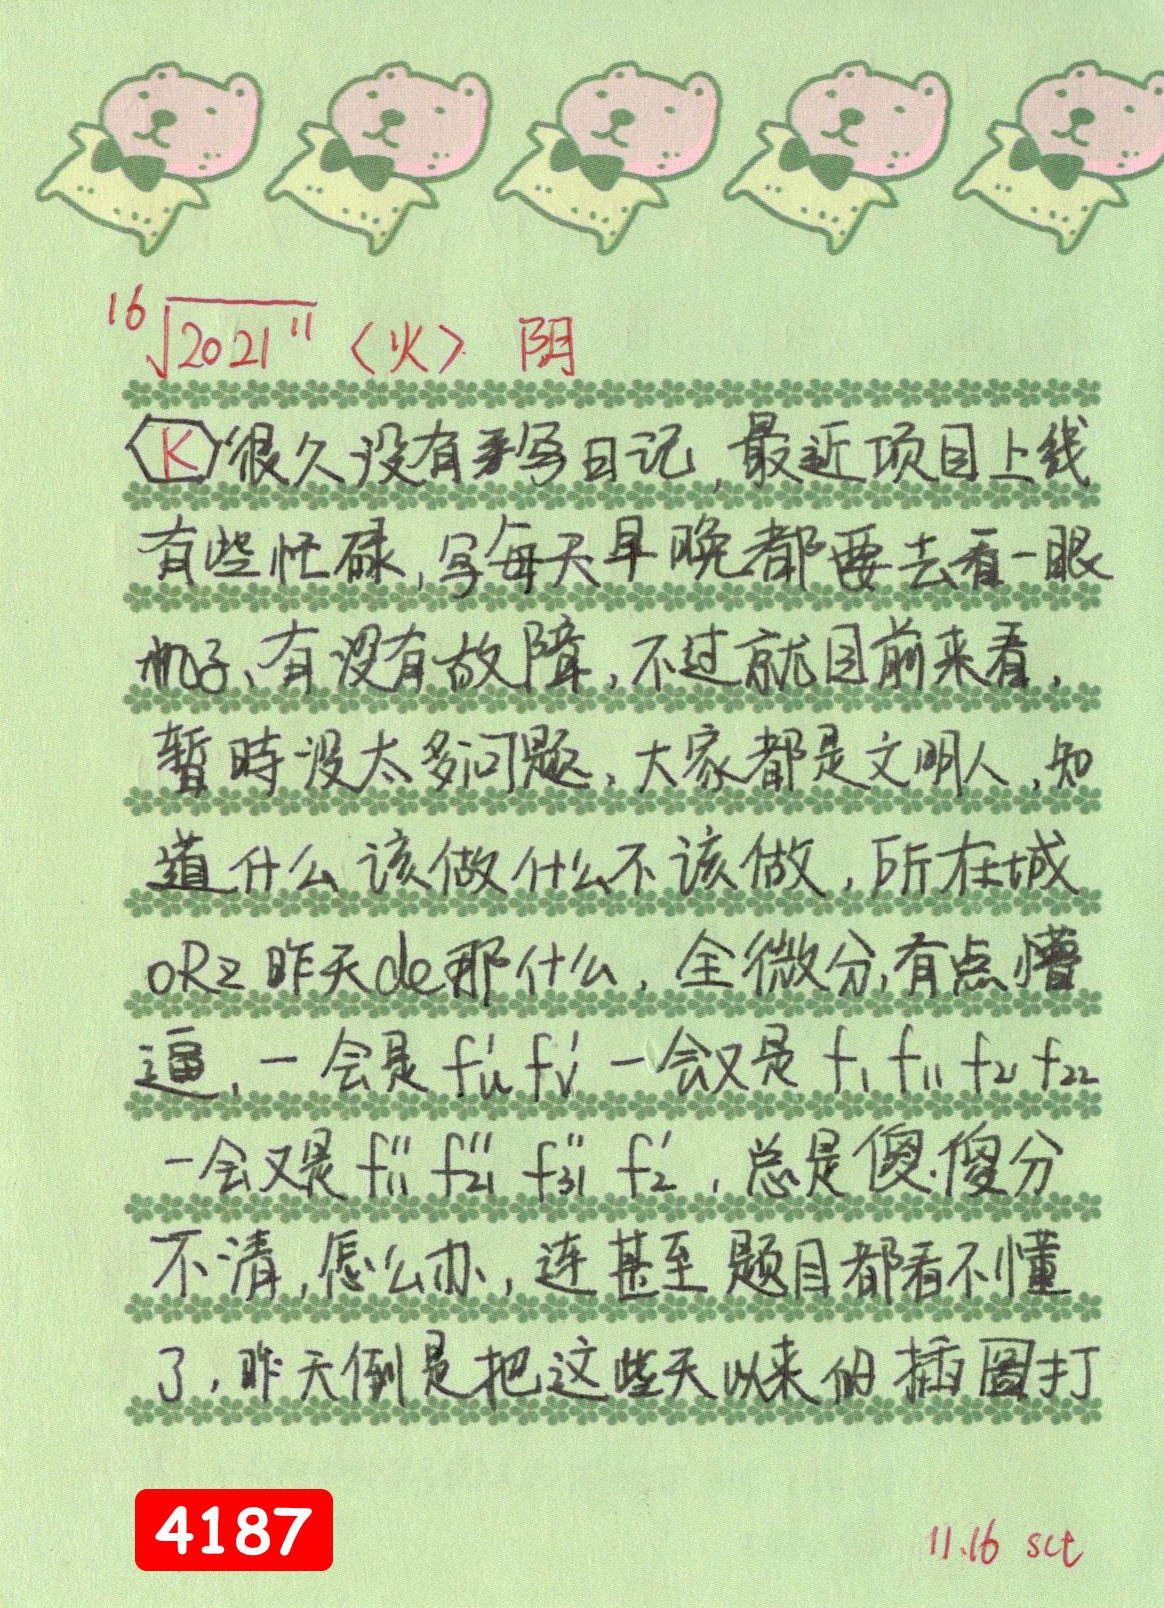 16√2021'' 〈火〉 阴
K 很久没有手写日记,最近项目上线
有些忙碌,写每天早晚都要去看一眼
机子、有没有故障,不过就目前来看,
暂時没太多问题,大家都是文明人,知
道什么该做什么不该做,所在城
oRz 昨天de那什么,全微分,有点懵
逼,一会是 f'u f'v 一会又是 f1 f11 f21 f22
一会又是 f''11 f''21 f''31 f'2,总是傻傻分
不清,怎么办,连甚至题目都看不懂
了,昨天倒是把这些天以来的插图打
4187
11.16 sct